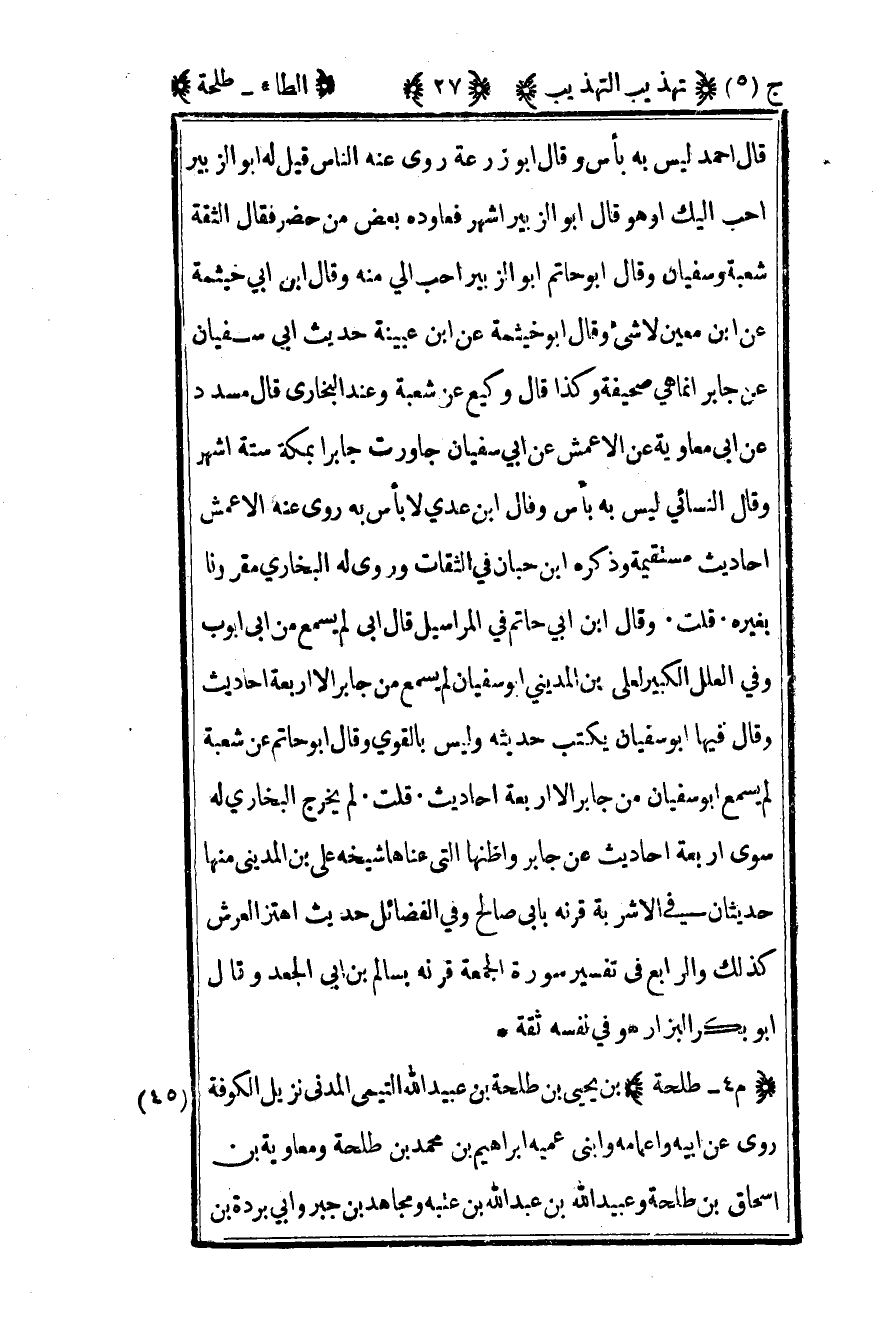 ج (٥) ﴿ تهذيب التهذيب ﴾ ﴿ ٢٧ ﴾ ﴿ الطاء ـ طلحة ﴾
قال احمد ليس به بأس وقال ابو زرعة روى عنه الناس قيل له ابو الزبير
احب اليك او هو قال ابو الزبير اشهر فعاوده بعض من حضر فقال الثقة
شعبة وسفيان وقال ابو حاتم ابو الزبير احب الي منه وقال ابن ابي خيثمة
عن ابن معين لاشئ وقال ابو خيثمة عن ابن عيينة حديث ابي سفيان
عن جابر انما هي صحيفة وكذا قال وكيع عن شعبة وعند البخارى قال مسدد
عن ابى معاوية عن الاعمش عن ابي سفيان جاورت جابرا بمكة ستة اشهر
وقال النسائي ليس به بأس وقال ابن عدي لا بأس به روى عنه الاعمش
احاديث مستقيمة وذكره ابن حبان في الثقات وروى له البخاري مقرونا
بغيره · قلت · وقال ابن ابي حاتم في المراسيل قال ابى لم يسمع من ابى ايوب
وفي العلل الكبير لعلى بن المديني ابو سفيان لم يسمع من جابر الا اربعة احاديث
وقال فيها ابو سفيان يكتب حديثه وليس بالقوي وقال ابو حاتم عن شعبة
لم يسمع ابو سفيان من جابر الا اربعة احاديث · قلت · لم يخرج البخاري له
سوى اربعة احاديث عن جابر واظنها التى عناها شيخه على بن المدينى منها
حديثان في الاشربة قرنه بابى صالح وفي الفضائل حديث اهتز العرش
كذلك والرابع فى تفسير سورة الجمعة قرنه بسالم بن ابي الجعد وقال
ابو بكر البزار هو في نفسه ثقة *
﴿ م ٤ ـ طلحة ﴾ بن يحيى بن طلحة بن عبيد الله التيمى المدنى نزيل الكوفة (٤٥)
روى عن ابيه واعمامه وابنى عميه ابراهيم بن محمد بن طلحة ومعاوية بن
اسحاق بن طلحة وعبيد الله بن عبد الله بن عتبه ومجاهد بن جبر وابي بردة بن